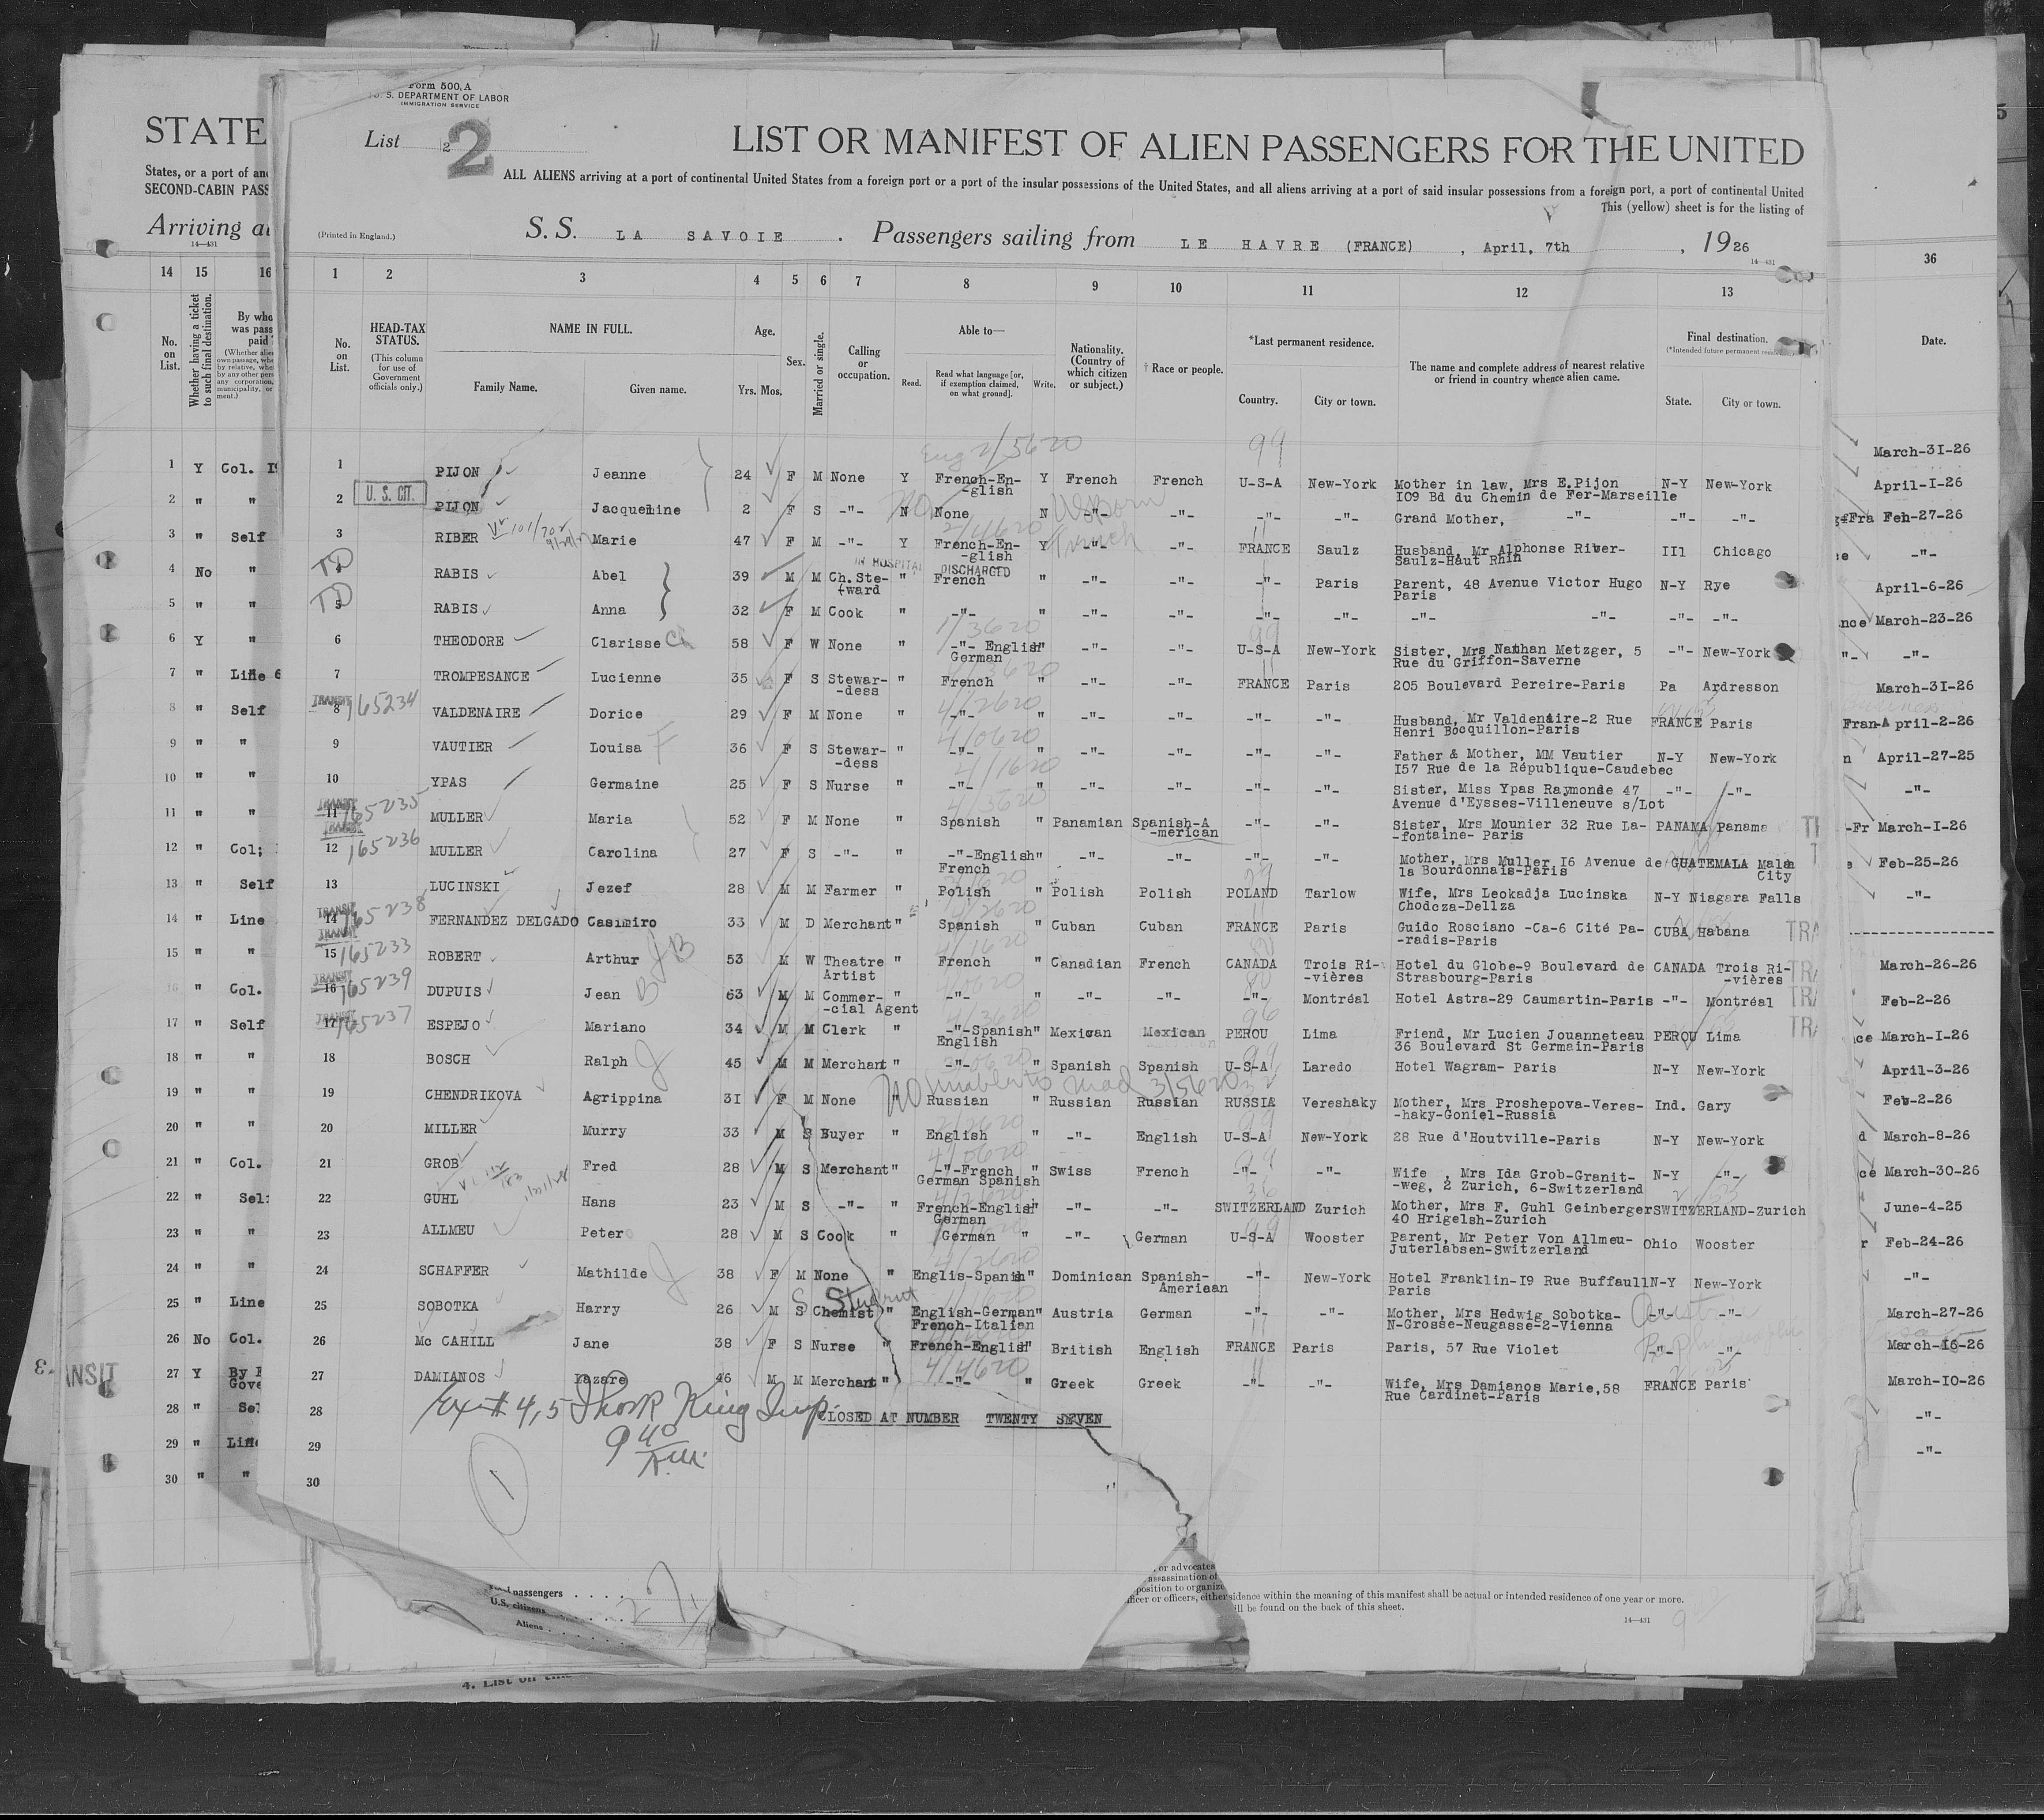 Form 500, A
U. S. DEPARTMENT OF LABOR
IMMIGRATION SERVICE
List 2 2
LIST OR MANIFEST OF ALIEN PASSENGERS FOR THE UNITED
ALL ALIENS arriving at a port of continental United States from a foreign port or a port of the insular possessions of the United States, and all aliens arriving at a port of said insular possessions from a foreign port, a port of continental United
This (yellow) sheet is for the listing of
(Printed in England.)
S. S. LA SAVOIE . Passengers sailing from LE HAVRE (FRANCE) , April, 7th , 1926
14—431
STATE
States, or a port of
SECOND-CABIN PASS
Arriving
14—431
14 15 16
1 2 3 4 5 6 7 8 9 10 11 12 13
36
No. on List.
Whether having a ticket to such final destination.
No. on List.
HEAD-TAX STATUS.
(This column for use of Government officials only.)
NAME IN FULL.
Family Name. Given name.
Age.
Yrs. Mos.
Sex.
Married or single.
Calling or occupation.
Able to—
Read. Read what language [or, if exemption claimed, on what ground]. Write.
Nationality. (Country of which citizen or subject.)
† Race or people.
*Last permanent residence.
Country. City or town.
The name and complete address of nearest relative or friend in country whence alien came.
Final destination.
State. City or town.
Date.
1 Y Col. 1 PIJON Jeanne 24 F M None Y French-En-glish Y French French U-S-A New-York Mother in law, Mrs E.Pijon I09 Bd du Chemin de Fer-Marseille N-Y New-York March-3I-26
2 " " 2 U. S. CIT. PIJON Jacqueline 2 F S -"- N None N -"- -"- -"- -"- Grand Mother, -"- -"- -"- April-I-26
3 " Self 3 RIBER Marie 47 F M -"- Y French-En-glish Y -"- -"- FRANCE Saulz Husband, Mr Alphonse River-Saulz-Haut Rhin Ill Chicago Feb-27-26
IN HOSPITAL DISCHARGED
4 No " TD RABIS Abel 39 M M Ch.Ste-ward " French " -"- -"- -"- Paris Parent, 48 Avenue Victor Hugo Paris N-Y Rye -"-
5 " " TD 5 RABIS Anna 32 F M Cook " -"- " -"- -"- -"- -"- -"- -"- -"- -"- April-6-26
6 Y " 6 THEODORE Clarisse 58 F W None " -"- English German " -"- -"- U-S-A New-York Sister, Mrs Nathan Metzger, 5 Rue du Griffon-Saverne -"- New-York March-23-26
7 " Line 7 TROMPESANCE Lucienne 35 F S Stewar-dess " French " -"- -"- FRANCE Paris 205 Boulevard Pereire-Paris Pa Ardresson -"-
8 " Self TRANSIT 8 165234 VALDENAIRE Dorice 29 F M None " -"- " -"- -"- -"- -"- Husband, Mr Valdenaire-2 Rue Henri Bocquillon-Paris FRANCE Paris March-3I-26
9 " " 9 VAUTIER Louisa 36 F S Stewar-dess " -"- " -"- -"- -"- -"- Father & Mother, MM Vautier I57 Rue de la République-Caudebec N-Y New-York April-2-26
10 " " 10 YPAS Germaine 25 F S Nurse " -"- " -"- -"- -"- -"- Sister, Miss Ypas Raymonde 47 Avenue d'Eysses-Villeneuve s/Lot -"- -"- April-27-25
11 " " TRANSIT 11 165235 MULLER Maria 52 F M None " Spanish " Panamian Spanish-A-merican -"- -"- Sister, Mrs Mounier 32 Rue La-fontaine- Paris PANAMA Panama -"-
12 " Col; TRANSIT 12 165236 MULLER Carolina 27 F S -"- " -"-English French " -"- -"- -"- -"- Mother, Mrs Muller I6 Avenue de la Bourdonnais-Paris GUATEMALA City March-I-26
13 " Self 13 LUCINSKI Jezef 28 M M Farmer " Polish " Polish Polish POLAND Tarlow Wife, Mrs Leokadja Lucinska Chodcza-Dellza N-Y Niagara Falls Feb-25-26
14 " Line TRANSIT 14 165238 FERNANDEZ DELGADO Casimiro 33 M D Merchant " Spanish " Cuban Cuban FRANCE Paris Guido Rosciano -Ca-6 Cité Pa-radis-Paris CUBA Habana TRA -"-
15 " " TRANSIT 15 165233 ROBERT Arthur 53 M W Theatre Artist " French " Canadian French CANADA Trois Ri-vières Hotel du Globe-9 Boulevard de Strasbourg-Paris CANADA Trois Ri-vières TRA
" Col. TRANSIT 16 165239 DUPUIS Jean 63 M M Commer-cial Agent " -"- " -"- -"- -"- Montréal Hotel Astra-29 Caumartin-Paris -"- Montréal TRA March-26-26
17 " Self TRANSIT 17 165237 ESPEJO Mariano 34 M M Clerk " -"-Spanish English " Mexican Mexican PEROU Lima Friend, Mr Lucien Jouanneteau 36 Boulevard St Germain-Paris PEROU Lima TRA Feb-2-26
18 " " 18 BOSCH Ralph 45 M M Merchant " -"- " Spanish Spanish U-S-A Laredo Hotel Wagram- Paris N-Y New-York March-I-26
19 " " 19 CHENDRIKOVA Agrippina 3I F M None No Russian " Russian Russian RUSSIA Vereshaky Mother, Mrs Proshepova-Veres-haky-Goniel-Russia Ind. Gary April-3-26
20 " " 20 MILLER Murry 33 M S Buyer " English " -"- English U-S-A New-York 28 Rue d'Houtville-Paris N-Y New-York Feb-2-26
21 " Col. 21 GROB Fred 28 M S Merchant " -"-French German Spanish " Swiss French -"- -"- Wife , Mrs Ida Grob-Granit-weg, 2 Zurich, 6-Switzerland N-Y -"- March-8-26
22 " 22 GUHL Hans 23 M S -"- " French-English German " -"- -"- SWITZERLAND Zurich Mother, Mrs F. Guhl Geinberger 40 Hrigelsh-Zurich SWITZERLAND-Zurich March-30-26
23 " " 23 ALLMEU Peter 28 M S Cook " German " -"- German U-S-A Wooster Parent, Mr Peter Von Allmeu-Juterlabsen-Switzerland Ohio Wooster June-4-25
24 " " 24 SCHAFFER Mathilde 38 F M None " Englis-Spanish " Dominican Spanish-Ameriaan -"- New-York Hotel Franklin-I9 Rue Buffaull Paris N-Y New-York Feb-24-26
25 " Line 25 SOBOTKA Harry 26 M S Chemist Student " English-German French-Italian " Austria German -"- -"- Mother, Mrs Hedwig Sobotka-N-Grosse-Neugasse-2-Vienna -"- -"- -"-
26 No Col. 26 Mc CAHILL Jane 38 F S Nurse " French-English " British English FRANCE Paris Paris, 57 Rue Violet -"- -"- March-27-26
27 Y By Gove 27 DAMIANOS Nazare 46 M M Merchant " -"- " Greek Greek -"- -"- Wife, Mrs Damianos Marie,58 Rue Cardinet-Paris FRANCE Paris March-16-26
28 " 28 CLOSED AT NUMBER TWENTY SEVEN March-IO-26
29 " Line 29 -"-
30 " " 30 -"-
9 40
1
passengers . . . . . 27
U.S. citizens
Aliens
or advocates
assassination of
position to organize
officer or officers, either
sidence within the meaning of this manifest shall be actual or intended residence of one year or more.
ill be found on the back of this sheet.
14—431
4. List on